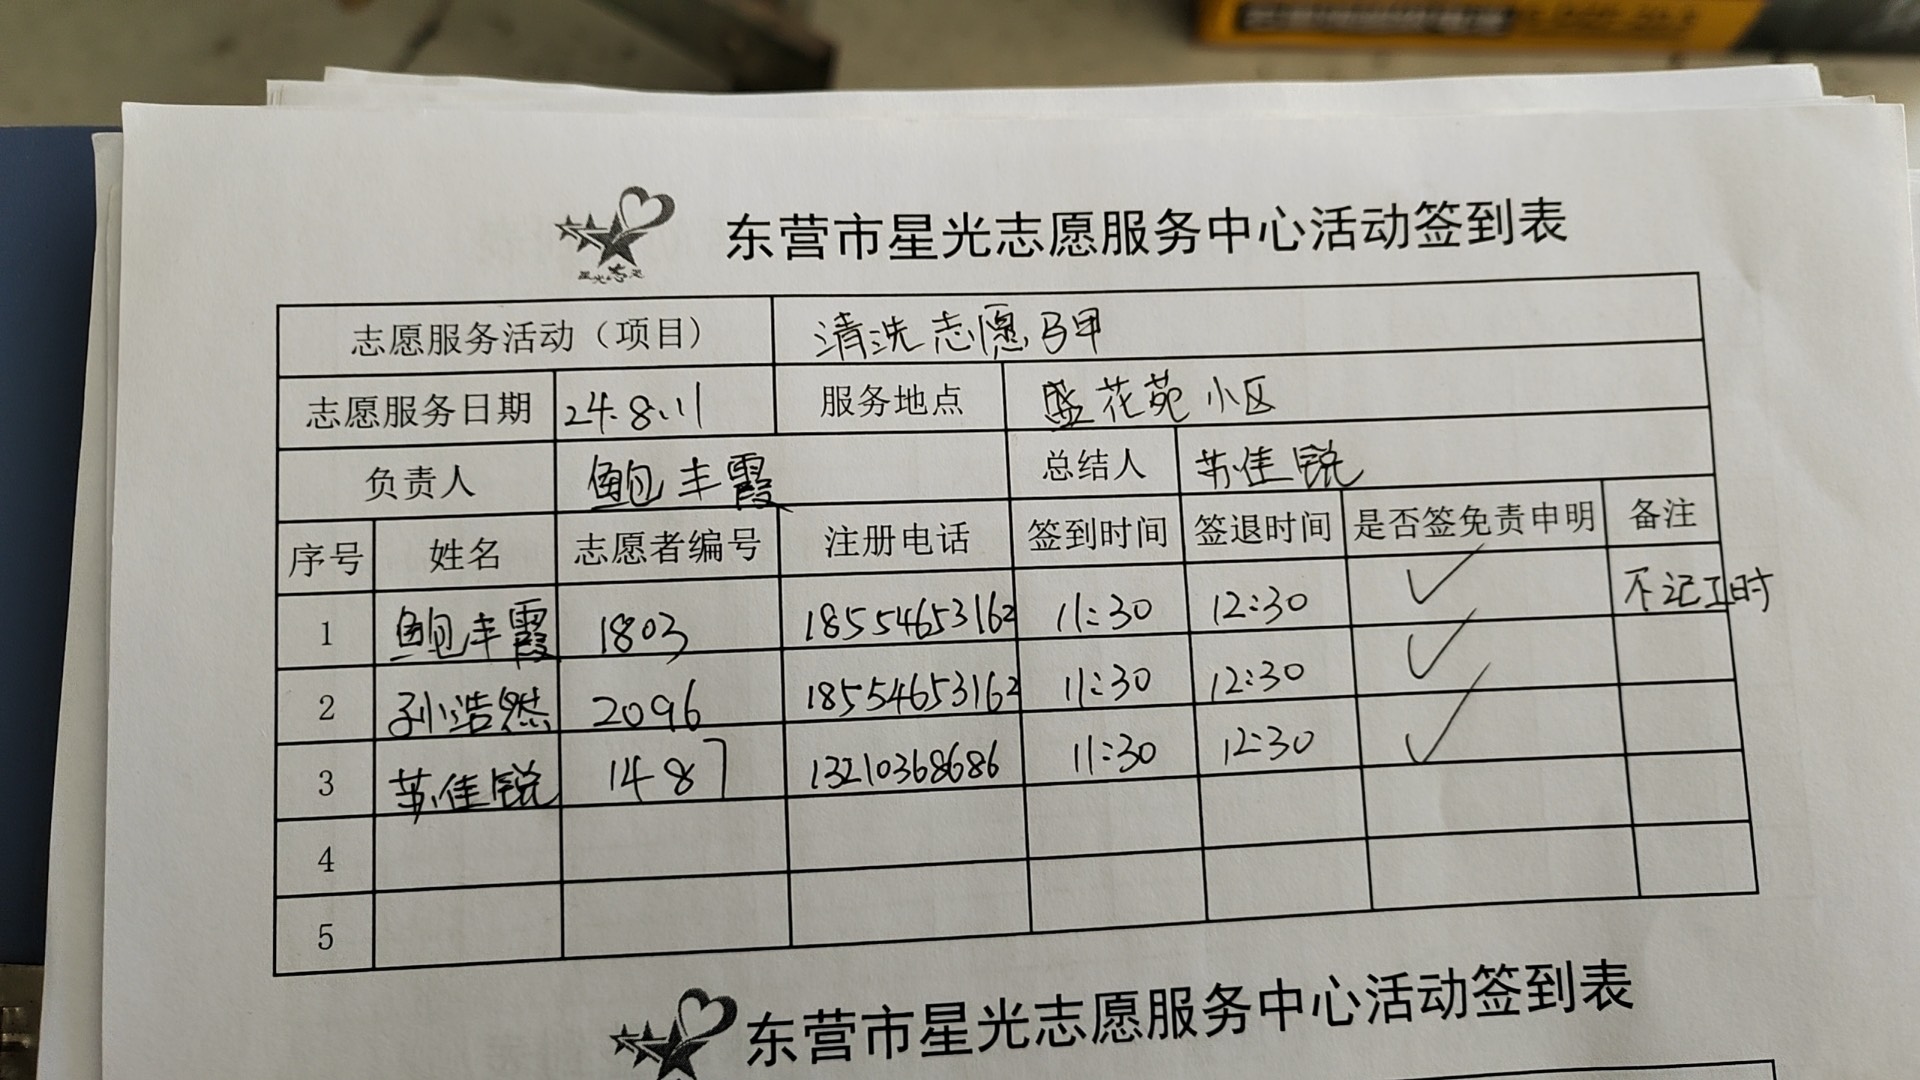 星光志愿
东营市星光志愿服务中心活动签到表
志愿服务活动（项目） 清洗志愿马甲
志愿服务日期 24.8.11 服务地点 盛花苑小区
负责人 鲍丰霞 总结人 苏佳锐
序号 姓名 志愿者编号 注册电话 签到时间 签退时间 是否签免责申明 备注
1 鲍丰霞 1803 18554653162 11:30 12:30 ✓ 不记工时
2 孙浩然 2096 18554653162 11:30 12:30 ✓
3 苏佳锐 1487 13210368686 11:30 12:30 ✓
4
5
东营市星光志愿服务中心活动签到表